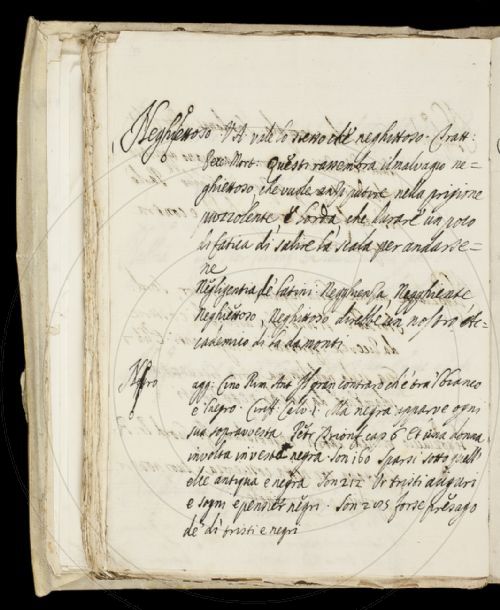 Neghiettoso. V A vile lo stesso che neghettoso. Tratt:
Pecc. Mort: Questi rassembra il malvagio ne=
ghiettoso che vuole anzi putire nella prigione
e lorda che durare un poco
di fatica di salire la scala per andarse=
ne
Negligentia de latini. Negghienza Negghiente
Neghiettoso, Neghittoso, direbbe un nostro Ac=
cademico di là da monti.
Negro agg: Cino Rim. Ant. Il gran contraro ch'è tra 'l bianco
e l'negro. Ma negra apparve ogni
sua sopravvesta. Petr cap 6 Et una donna
involta in vesta negra. Son 160 sotto quall'
elce antiqua e negra. Son 212 Or tristi auguri
e sogni e pensier negri. Son forse presago
de' dì tristi e negri